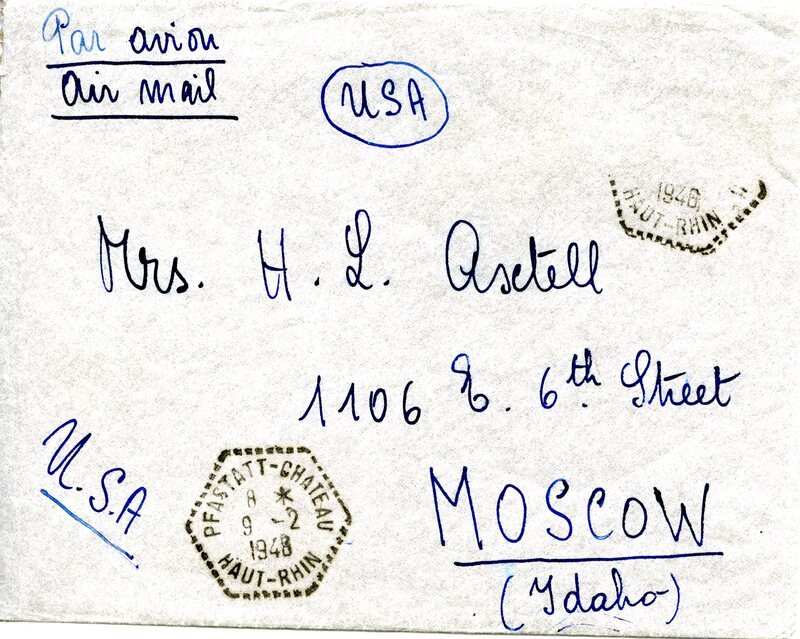 Par avion
air mail
USA
1948
HAUT-RHIN
Mrs. H. L. Axtell
1106 E. 6th. Street
U.S.A
PFASTATT-CHATEAU
8 *
9 -2
1948
HAUT-RHIN
MOSCOW
(Idaho)